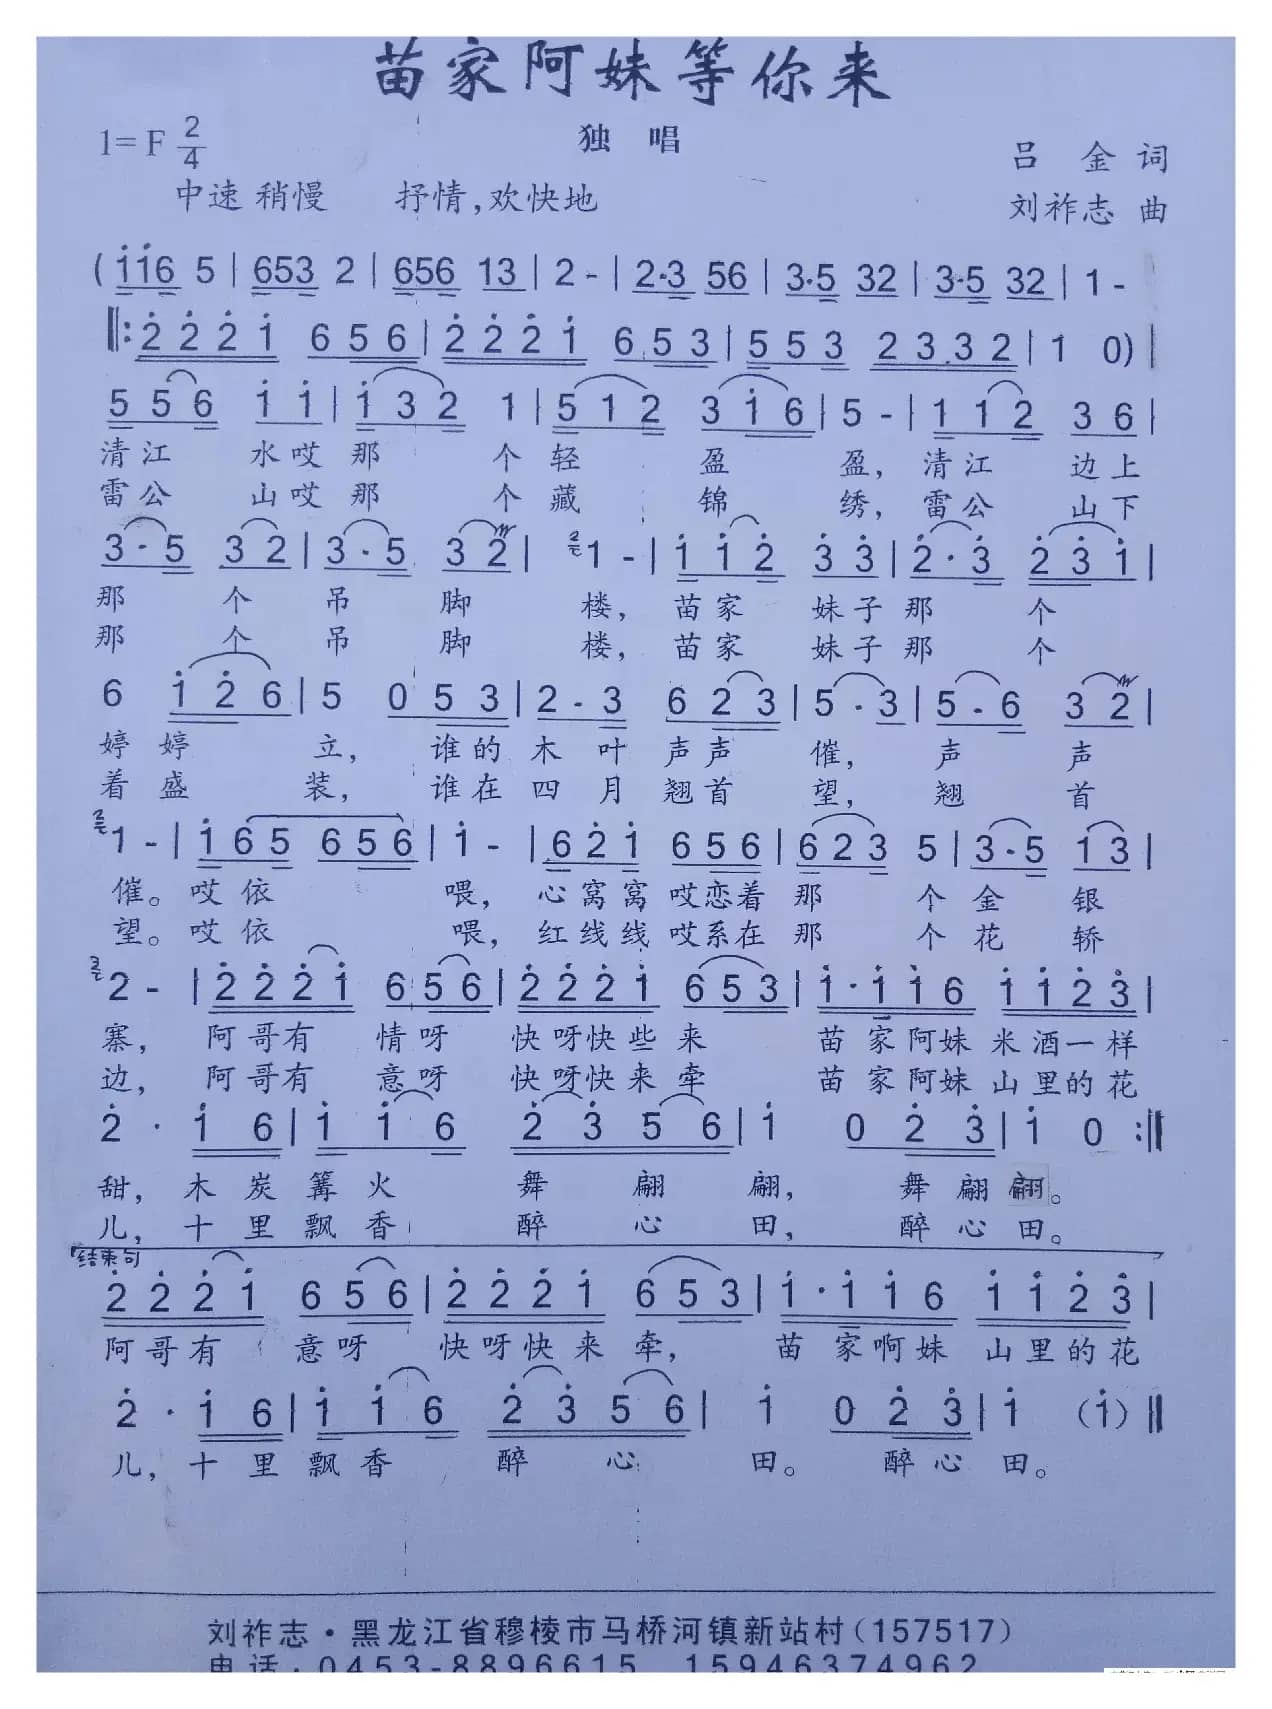 苗家阿妹等你来
独 唱
1=F 2/4
吕 金 词
中速 稍慢 抒情,欢快地
刘祚志 曲
(1̇1̇6 5 | 653 2 | 656 13 | 2 - | 2·3 56 | 3·5 32 | 3·5 32 | 1 -
‖: 2̇2̇2̇1̇ 656 | 2̇2̇2̇1̇ 653 | 553 2332 | 1 0) |
556 1̇1̇ | 1̇32 1 | 512 31̇6 | 5 - | 112 36 |
清江 水哎那 个轻 盈 盈, 清江 边上
雷公 山哎那 个藏 锦 绣, 雷公 山下
3·5 32 | 3·5 32 | 1 - | 1̇1̇2̇ 3̇3̇ | 2̇·3̇ 2̇3̇1̇ |
那 个 吊 脚 楼, 苗家 妹子那 个
那 个 吊 脚 楼, 苗家 妹子那 个
6 1̇2̇6 | 5 053 | 2·3 623 | 5·3 | 5·6 32 |
婷婷 立, 谁的木 叶 声声 催, 声 声
着盛 装, 谁在四 月 翘首 望, 翘 首
1 - | 1̇65 656 | 1̇ - | 62̇1̇ 656 | 623 5 | 3·5 13 |
催。哎依 喂, 心窝窝哎恋着 那 个金 银
望。哎依 喂, 红线线哎系在 那 个花 轿
2 - | 2̇2̇2̇1̇ 656 | 2̇2̇2̇1̇ 653 | 1̇·1̇1̇6 1̇1̇2̇3̇ |
寨, 阿哥有 情呀 快呀快些来 苗家阿妹 米酒一样
边, 阿哥有 意呀 快呀快来牵 苗家阿妹 山里的花
2̇· 1̇6 | 1̇1̇6 2̇3̇56 | 1̇ 02̇3̇ | 1̇ 0 :‖
甜, 木炭篝火 舞 翩 翩, 舞翩翩。
儿, 十里飘香 醉 心 田, 醉心田。
结束句
2̇2̇2̇1̇ 656 | 2̇2̇2̇1̇ 653 | 1̇·1̇1̇6 1̇1̇2̇3̇ |
阿哥有 意呀 快呀快来牵, 苗家啊妹 山里的花
2̇· 1̇6 | 1̇1̇6 2̇3̇56 | 1̇ 02̇3̇ | 1̇ (1̇) ‖
儿, 十里飘香 醉 心 田。 醉心 田。
刘祚志·黑龙江省穆棱市马桥河镇新站村(157517)
电话·0453-8896615 15946374962